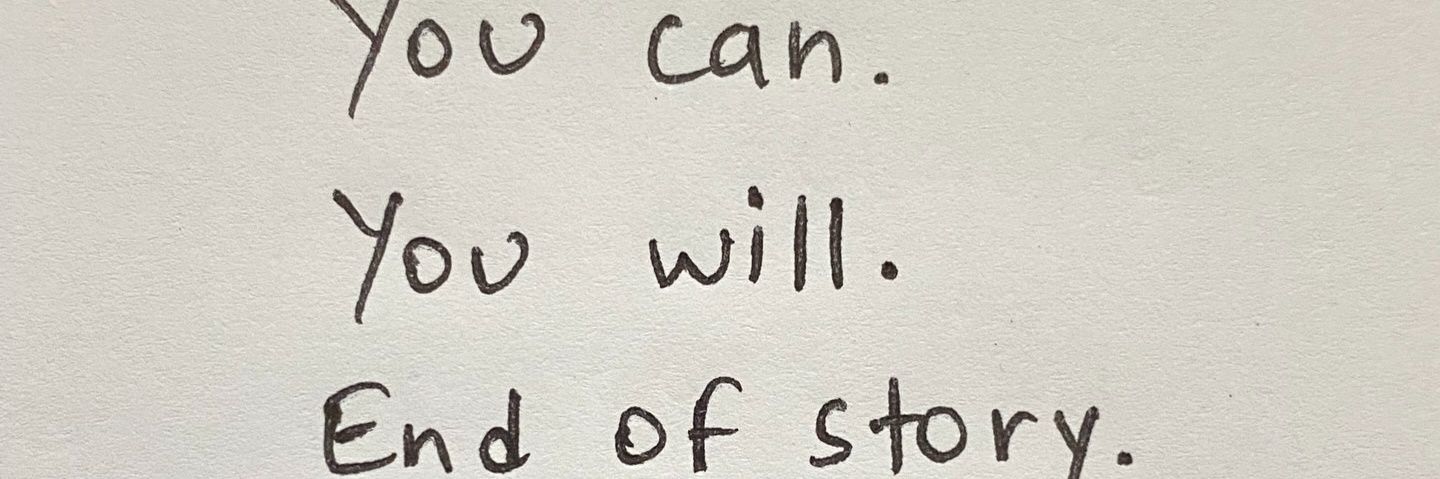 You can.
You will.
End of story.